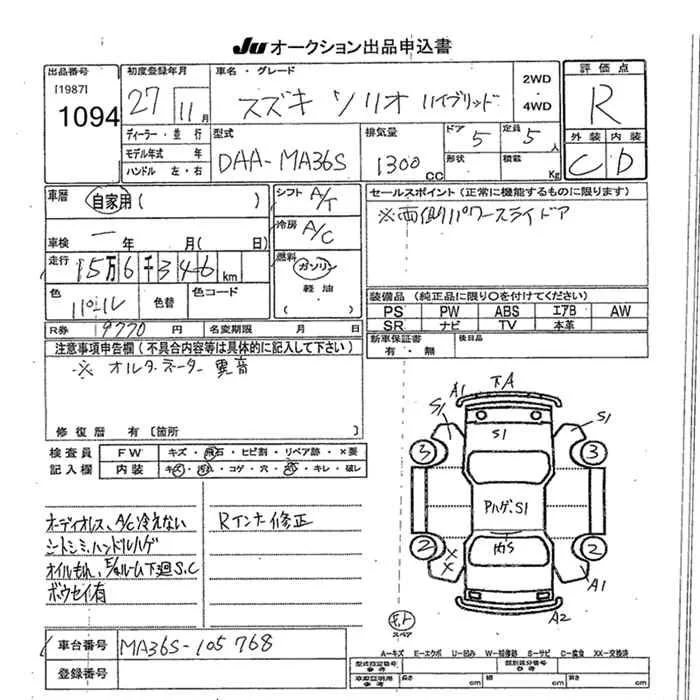 JU オークション出品申込書
出品番号
[1987]
1094
初度登録年月
27 11月
車名・グレード
スズキ ソリオ ハイブリッド
2WD
・
4WD
評価点
R
ディーラー・並行
モデル年式 年
ハンドル 左・右
型式
DAA-MA36S
排気量
1300
CC
ドア 5
形状
定員 5 人
積載 Kg
外装 内装
C D
車歴
自家用 ( )
車検 一 年 月( 日)
走行 15万6千346 km
色
パール
色替
色コード
シフト A/T
冷房 A/C
燃料
ガソリン
軽油
( )
セールスポイント(正常に機能するものに限ります)
※両側パワースライドア
装備品(純正品に限り○を付けてください)
PS PW ABS エアB AW
SR ナビ TV 本革
R券 9770 円 名変期限 月 日
新車保証書
有・無
後日品
注意事項申告欄(不具合内容等は具体的に記入して下さい)
※ オルタネーター 異音
修復歴 有 〔箇所 〕
検査員
記入欄
FW キズ・飛石・ヒビ割・リペア跡・×要
内装 キズ・汚れ・コゲ・穴・・キレ・破レ
オーディオレス、A/C冷えない
シートシミ、ハンドルハゲ
オイルもれ、E/gルーム下廻S.C
ボウセイ有
Rインナー修正
A1 下A
S1 S1 S1
3 3
Pハゲ.S1
2 2
××
A1
A2
スペア
車台番号 MA36S-105768
登録番号
A-キズ E-エクボ U-凹み W-補修跡 S-サビ C-腐食 XX-交換済
型式指定番号
参考
類別区分番号
参考
長さ cm 幅 cm 高さ cm